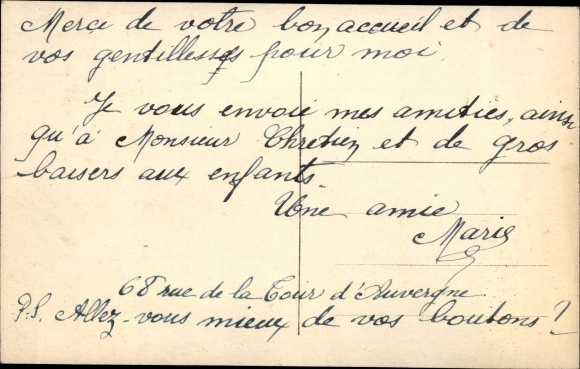 Merci de votre bon accueil et de
vos gentillesses pour moi.
Je vous envoie mes amitiés, ainsi
qu'à Monsieur Chretien et de gros
baisers aux enfants.
Une amie
Marie
68 rue de la Tour d'Auvergne
P.S. Allez-vous mieux de vos boutons ?